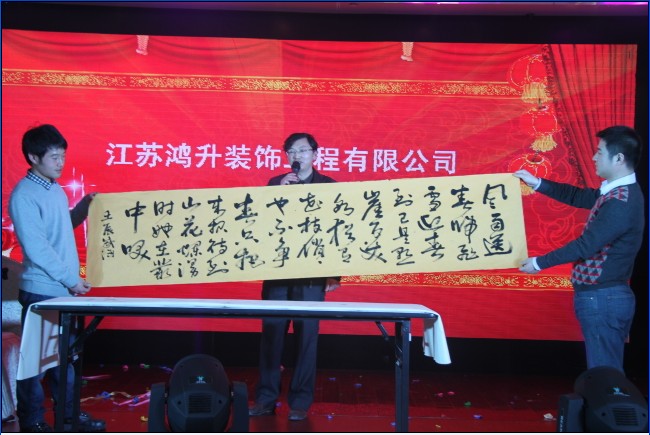 江苏鸿升装饰工程有限公司
风雨送
春归飞
雪迎春
到已是悬
崖百丈
冰犹有
花枝俏
也不争
春只把
来报待到
山花烂漫
时她在丛
中笑
壬辰